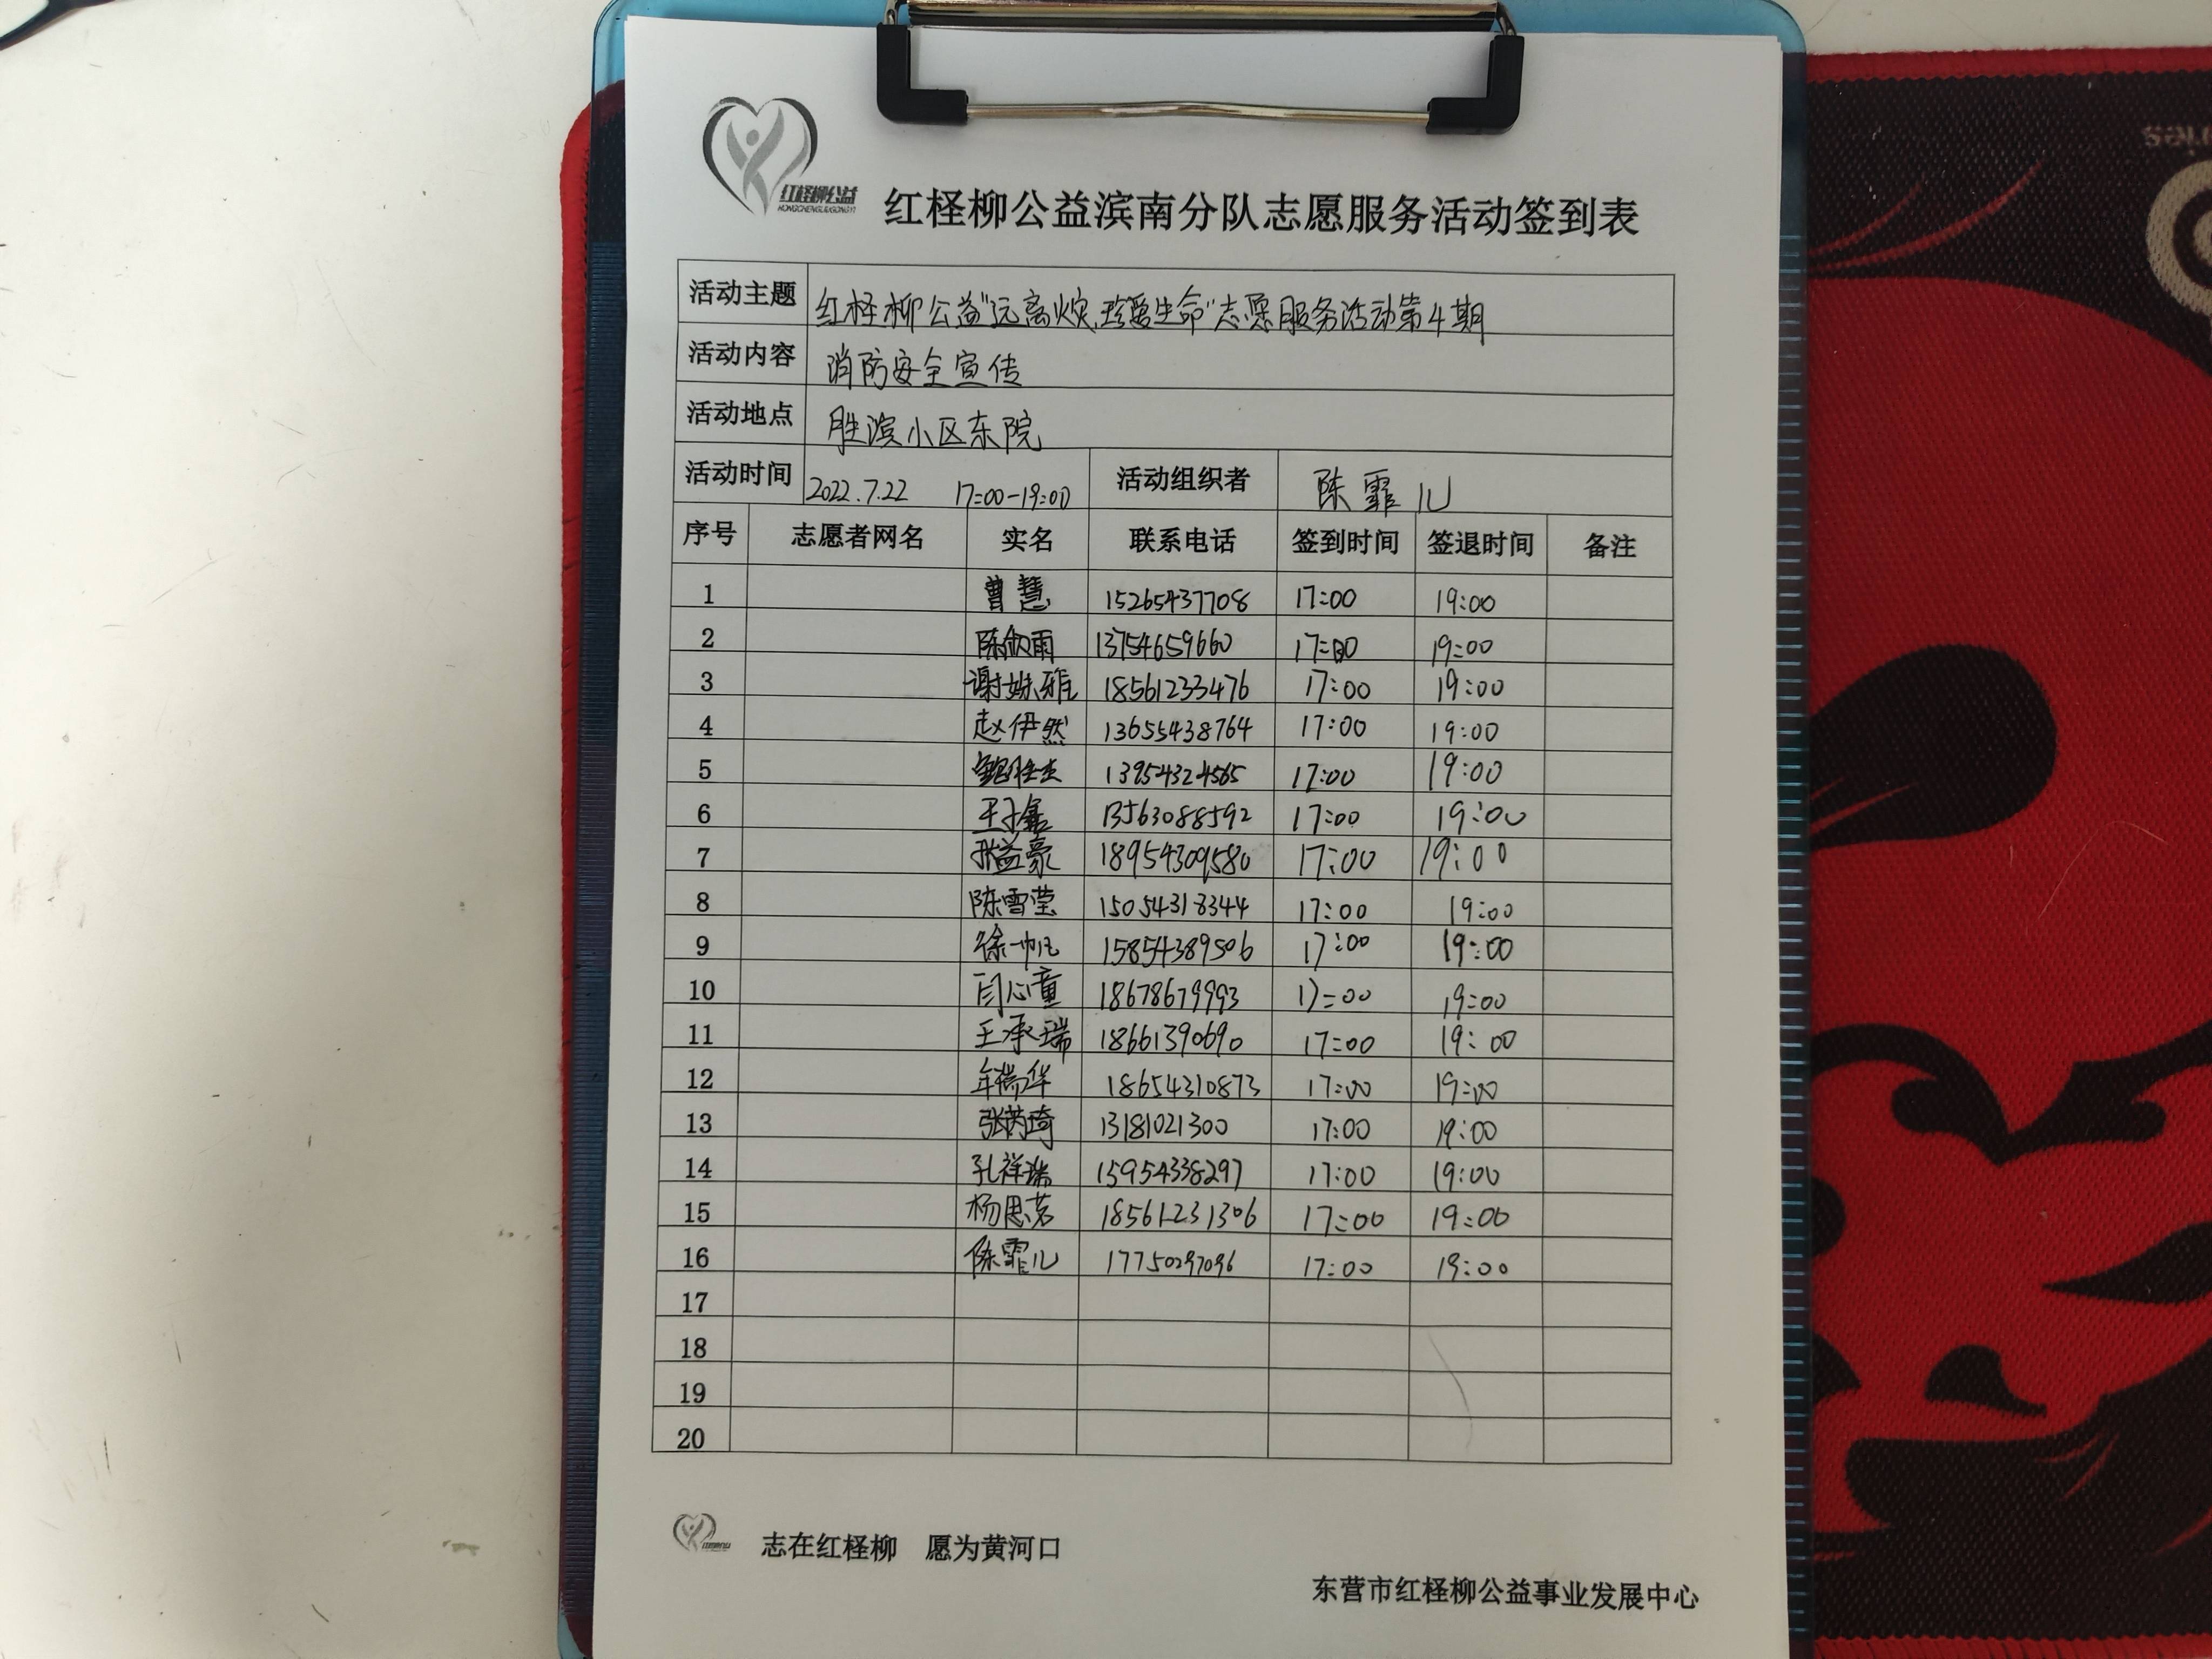 红柽柳公益
HONGCHENGLIUGONGYI
红柽柳公益滨南分队志愿服务活动签到表
活动主题 红柽柳公益"远离火灾、珍爱生命"志愿服务活动第4期
活动内容 消防安全宣传
活动地点 胜滨小区东院
活动时间 2022.7.22 17:00-19:00 活动组织者 陈霏儿
序号 志愿者网名 实名 联系电话 签到时间 签退时间 备注
1 曹慧 15265437708 17:00 19:00
2 陈钦雨 13754659660 17:00 19:00
3 谢姝雅 18561233476 17:00 19:00
4 赵伊然 13655438764 17:00 19:00
5 13954324565 17:00 19:00
6 王子鑫 13563088592 17:00 19:00
7 张益豪 18954309580 17:00 19:00
8 陈雪莹 15054318344 17:00 19:00
9 徐一帆 15854389506 17:00 19:00
10 闫心童 18678679993 17:00 19:00
11 王承瑞 18661390690 17:00 19:00
12 牟瑞华 18654310873 17:00 19:00
13 张芮琦 13181021300 17:00 19:00
14 孔祥瑞 15954338297 17:00 19:00
15 杨思茗 18561231306 17:00 19:00
16 陈霏儿 17750297096 17:00 19:00
17
18
19
20
志在红柽柳 愿为黄河口
东营市红柽柳公益事业发展中心